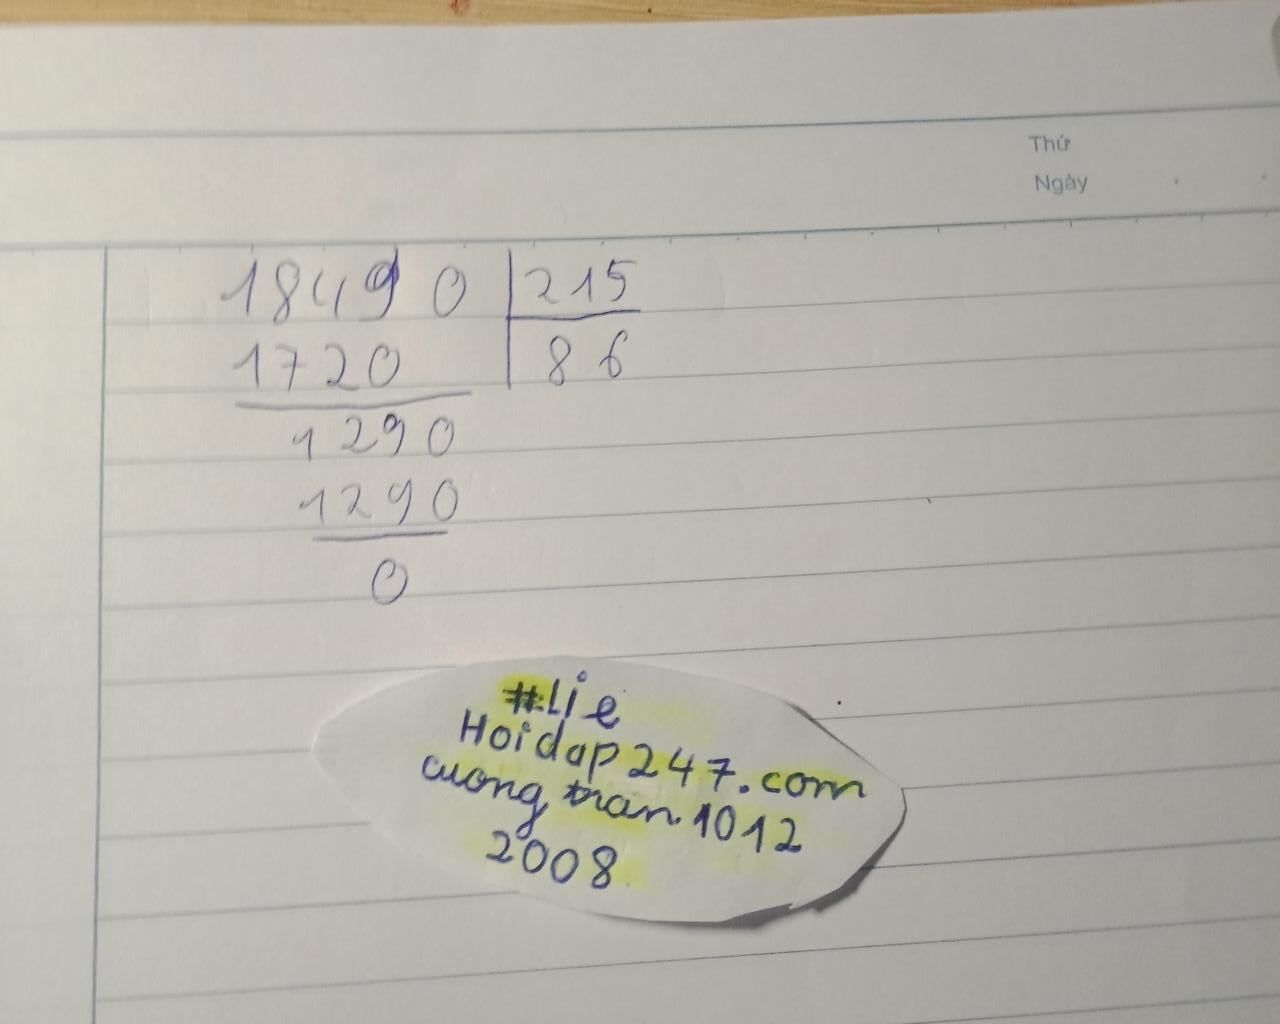 Thứ
Ngày
18490 215
1720 86
1290
1290
0
#Lie
Hoidap247.com
cuong tran 1012
2008